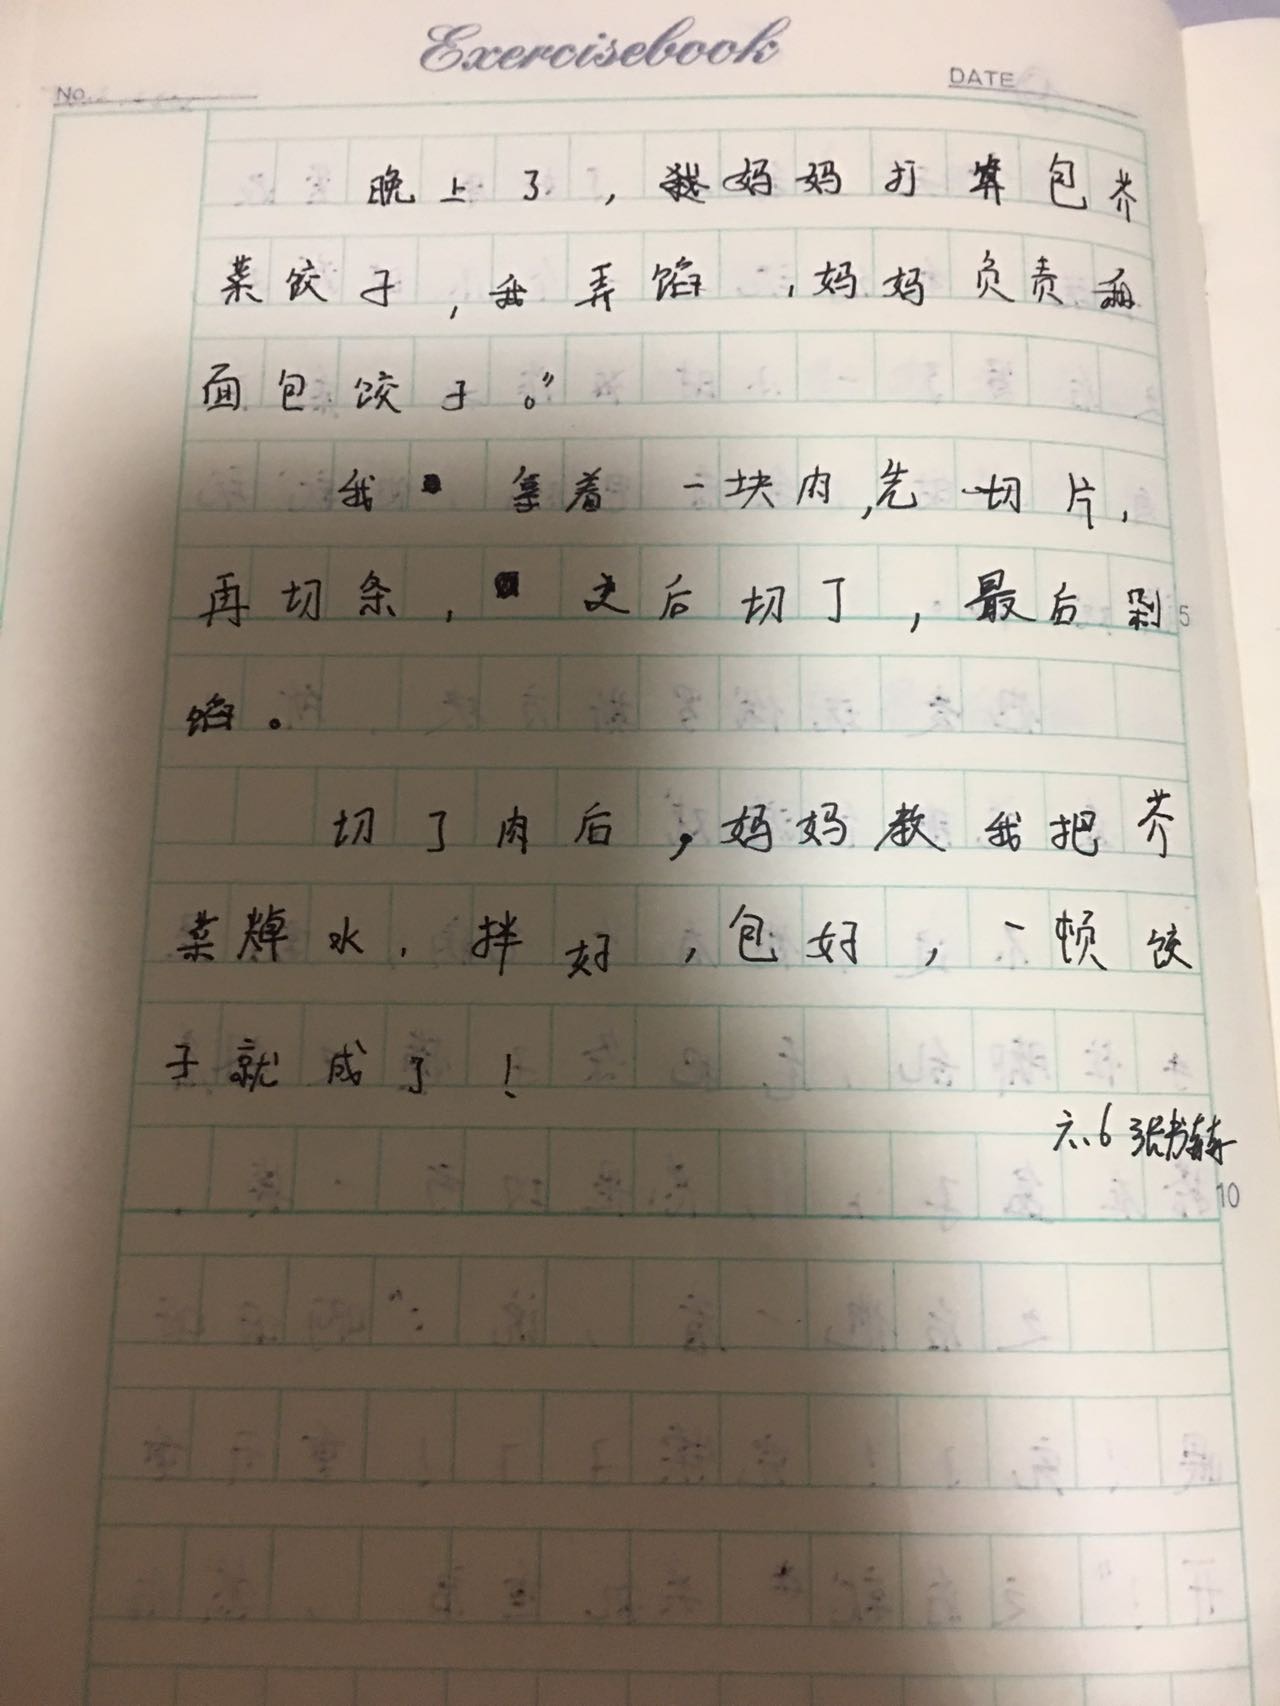 Exercisebook
No.
DATE
晚上了，我妈妈打算包芥
菜饺子，我弄馅，妈妈负责和
面包饺子。”
我拿着一块肉，先切片，
再切条，之后切丁，最后剁
5
馅。
切了肉后，妈妈教我把芥
菜焯水，拌好，包好，一顿饺
子就成了！
六.6 张书
10